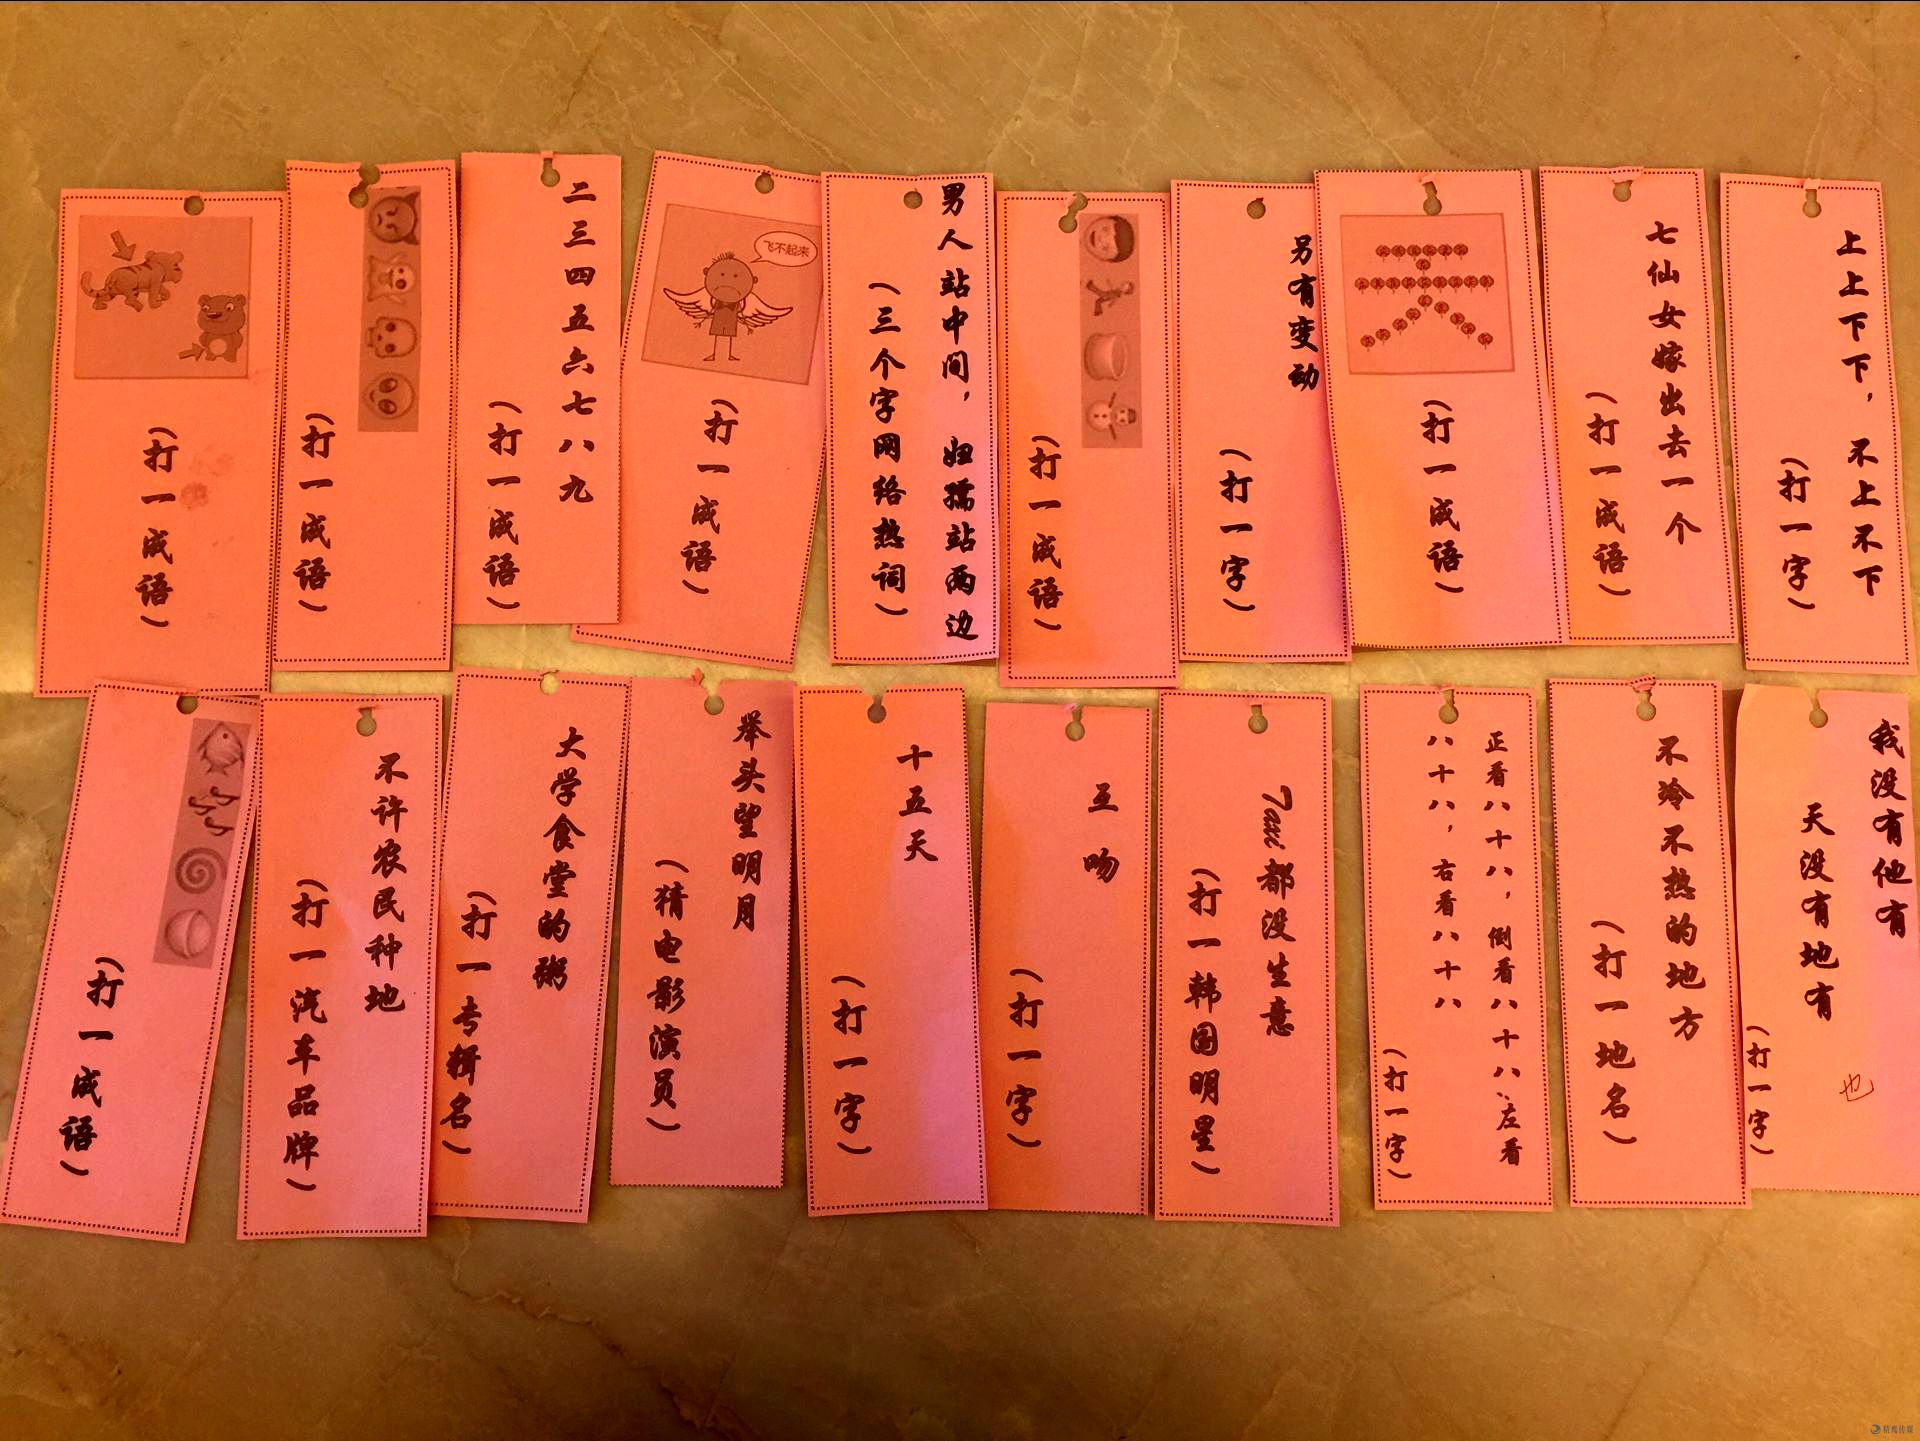 (打一成语)
(打一成语)
二三四五六七八九
(打一成语)
飞不起来
(打一成语)
男人站中间，妇孺站两边
(三个字网络热词)
(打一成语)
另有变动
(打一字)
(打一成语)
七仙女嫁出去一个
(打一成语)
上上下下，不上不下
(打一字)
(打一成语)
不许农民种地
(打一汽车品牌)
大学食堂的粥
(打一专辑名)
举头望明月
(猜电影演员)
十五天
(打一字)
互吻
(打一字)
Taxi都没生意
(打一韩国明星)
正看八十八，倒看八十八、左看
八十八，右看八十八
(打一字)
不冷不热的地方
(打一地名)
我没有他有
天没有地有
(打一字)
也
精鹰传媒